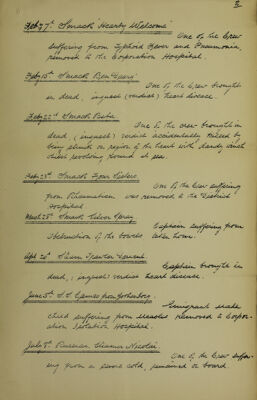 Feby 7th Smack "Hearty Welcome"
One of the Crew
suffering from Typhoid Fever and Pneumonia,
removed to the Corporation Hospital.
Feby 15th Smack
One of the Crew brought
in dead, inquest (verdict) heart disease.
Feby 22nd Smack
One of the crew brought in
dead (inquest) verdict accidentally killed by
being struck on region of the heart with dandy winch
whilst revolving found at sea
Feby 25th Smack Four Sisters
One of the Crew suffering
from Rheumatism was removed to the District
Hospital
March 28th Smack Silver Spray
Captain suffering from
Obstruction of the bowels taken home.
Apl 26th Steam Trawler
Captain brought in
dead, (inquest) verdict heart disease.
June 5th S.S. James from Gothenborg.
Emigrant
child suffering from measles removed to Corpor-
ation Isolation Hospital.
July 8th Russian Steamer Nicolai
One of the Crew suffer-
ing from a severe cold, remained on board.